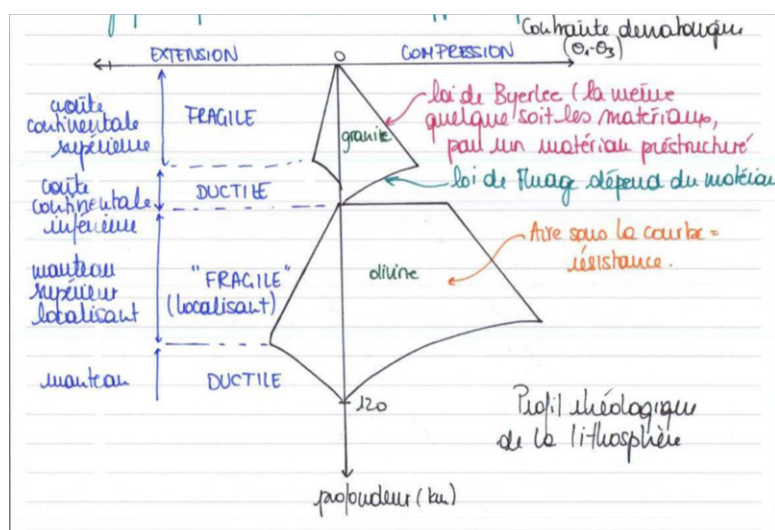 Contrainte démationique
(θ₁-θ₃)
EXTENSION
O
COMPRESSION
croûte
continentale
supérieure
FRAGILE
granite
loi de Byerlee (la même
quelque soit les matériaux,
pour un matériau préstructuré
croûte
continentale
inférieure
DUCTILE
loi de fluage dépend du matériau
manteau
supérieur
localisant
"FRAGILE"
(localisant)
olivine
Aire sous la courbe =
résistance.
manteau
DUCTILE
120
Profil rhéologique
de la lithosphère
profondeur (km)